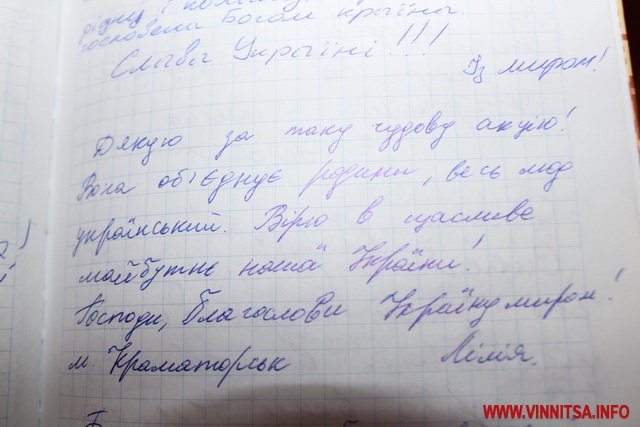 рідну і
Богом країни.
Слава Україні!!!
Із миром!
Дякую за таку чудову акцію!
Вона об'єднує родини, весь люд
український. Вірю в щасливе
майбутнє нашої України!
Господи, благослови Україну миром!
м. Краматорськ Лілія.
WWW.VINNITSA.INFO